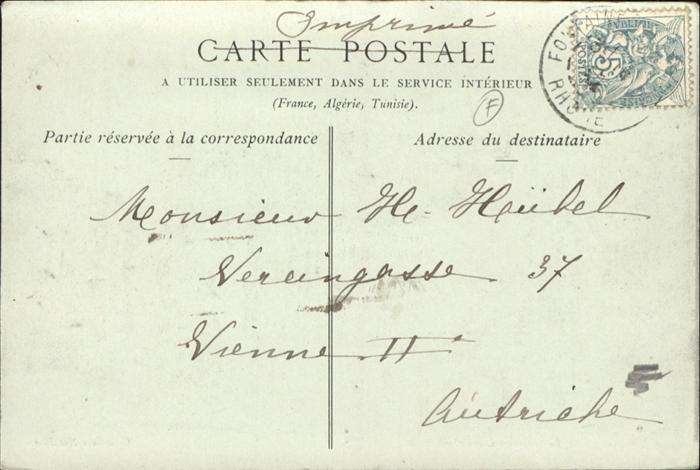 Imprimé
CARTE POSTALE
A UTILISER SEULEMENT DANS LE SERVICE INTÉRIEUR
(France, Algérie, Tunisie).
F
RHONE
Partie réservée à la correspondance
Adresse du destinataire
Monsieur H. Hoübel
Vereinsgasse 37
Vienne II
Autriche